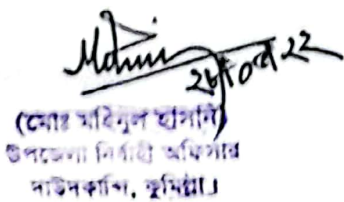 ২৮/০৮/২২
(মোঃ মহিনুল হাসান)
উপজেলা নির্বাহী অফিসার
দাউদকান্দি, কুমিল্লা।